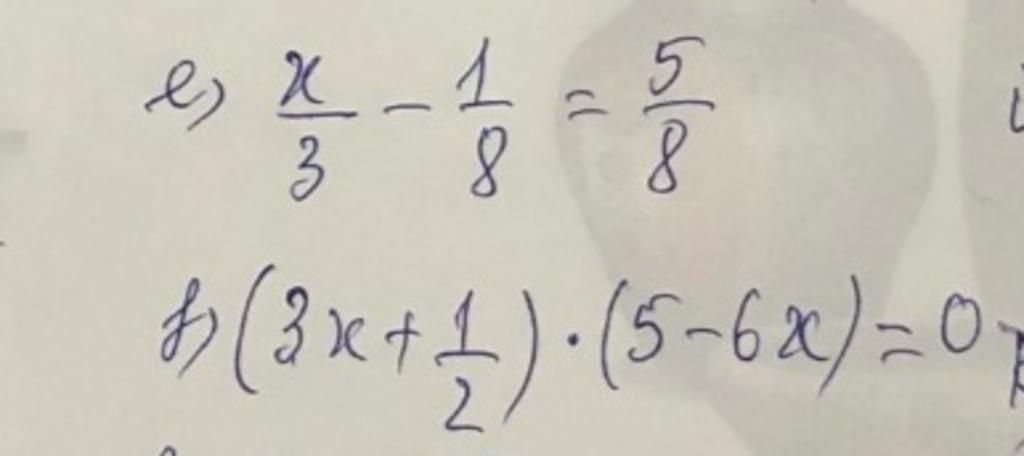 e) x/3 - 1/8 = 5/8
f) (3x + 1/2) · (5 - 6x) = 0